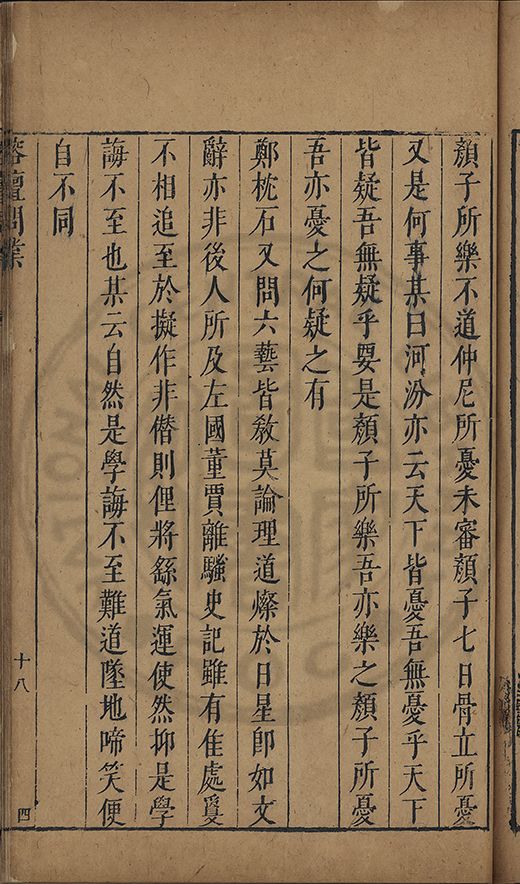 顏子所樂不道仲尼所憂未審顏子七日骨立所憂
又是何事某曰河汾亦云天下皆憂吾無憂乎天下
皆疑吾無疑乎要是顏子所樂吾亦樂之顏子所憂
吾亦憂之何疑之有
鄭枕石又問六藝皆敘莫論理道燦於日星卽如文
辭亦非後人所及左國董賈離騷史記雖有佳處夐
不相追至於擬作非僭則俚將繇氣運使然抑是學
誨不至也某云自然是學誨不至難道墜地啼笑便
自不同
榕壇問業
十八
四